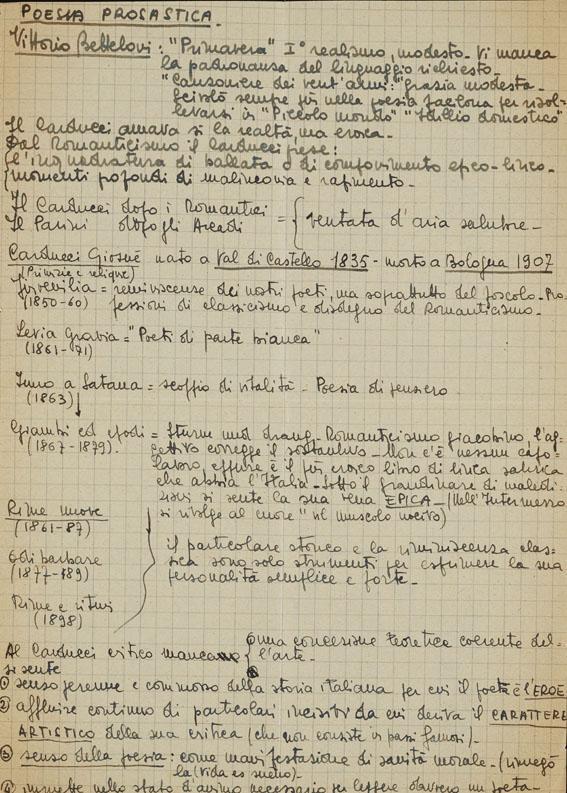 POESIA PROSASTICA.
Vittorio Bettelovi: "Primavera" I° realismo, modesto. Vi manca
la padronanza del linguaggio richiesto.
"Canzoniere dei vent'anni": "grazia modesta.
scivolò sempre più nella poesia facilona per risol-
levarsi in "Piccolo mondo" "Idillio domestico"
Il Carducci amava sì la realtà, ma eroica.
Dal Romanticismo il Carducci prese:
l'inquadratura di ballata o di componimento epico-lirico.
momenti profondi di malinconia e rapimento.
Il Carducci dopo i Romantici
Il Parini dopo gli Arcadi = ventata d'aria salubre.
Carducci Giosuè nato a Val di Castello 1835 - morto a Bologna 1907
(Primizie e reliquie)
Juvenilia = reminiscenze dei nostri poeti, ma soprattutto del Foscolo. Pro-
(1850-60) fessioni di classicismo e disdegno del Romanticismo.
Levia Gravia = "Poeti di parte bianca"
(1861-71)
Inno a Satana = scoppio di vitalità - Poesia di pensiero.
(1863)
Giambi ed epodi = Sturm und drang - Romanticismo giacobino, l'ag-
(1867-1879). gettivo corregge il sostantivo. Non c'è nessun capo-
lavoro, eppure è il più eroico libro di lirica satirica
che abbia l'Italia. Sotto il grandinare di maledi-
zioni si sente la sua vena EPICA (Nell'Intermezzo
si rivolge al cuore "vil muscolo nocivo)
Rime nuove
(1861-87)
Odi barbare
(1877-889)
Rime e ritmi
(1898)
il particolare storico e la reminiscenza clas-
sica sono solo strumenti per esprimere la sua
personalità semplice e forte.
Al Carducci critico manca una concezione teoretica coerente del-
l'arte.
si sente
① senso perenne e commosso della storia italiana per cui il poeta è l'EROE
② affluire continuo di particolari incisivi da cui deriva il CARATTERE
ARTISTICO della sua critica (che non consiste in passi famosi).
③ senso della poesia: come manifestazione di sanità morale - (rinnegò
la (vida es sueño).
④ immette nello stato d'animo necessario per leggere davvero un poeta-